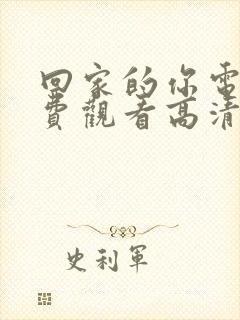 回家的你電
費觀看高清
史利軍